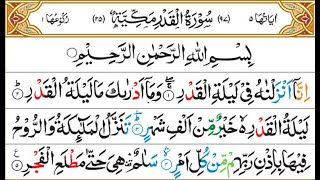 اٰيَاتُهَا ٥ (٩٧) سُوْرَةُ الْقَدْرِ مَكِّيَّةٌ (٢٥) رُكُوْعُهَا ١
بِسْمِ اللّٰهِ الرَّحْمٰنِ الرَّحِيْمِ
اِنَّاۤ اَنْزَلْنٰهُ فِيْ لَيْلَةِ الْقَدْرِ ۚۖ ١ وَمَاۤ اَدْرٰىكَ مَا لَيْلَةُ الْقَدْرِ ؕ ٢
لَيْلَةُ الْقَدْرِ ۙ خَيْرٌ مِّنْ اَلْفِ شَهْرٍ ؕؔ ٣ تَنَزَّلُ الْمَلٰٓئِكَةُ وَالرُّوْحُ
فِيْهَا بِاِذْنِ رَبِّهِمْ ۚ مِّنْ كُلِّ اَمْرٍ ۙۛ ٤ سَلٰمٌ ۛ هِيَ حَتّٰى مَطْلَعِ الْفَجْرِ ٥ ع